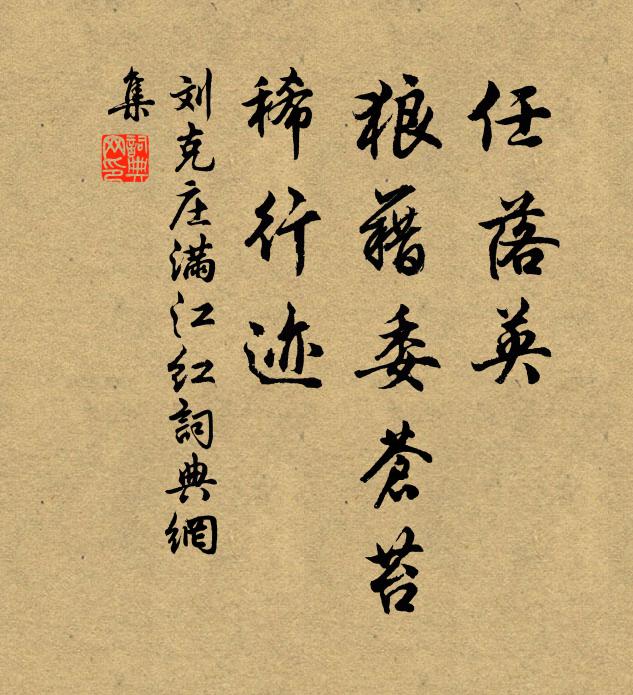 任落英
狼藉委蒼苔
稀行迹
刘克庄满江红詞典網
集
詞典
网印